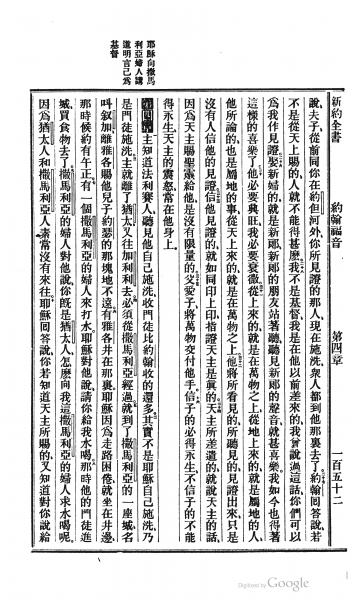 新約全書 約翰福音 第四章 一百五十二
說、夫子、從前同你在約但河外、你所見證的那人、現在施洗、衆人都到他那裏去了、約翰回答說、若
不是從天上賜的、人就不能得甚麼、我不是基督、我是在他以前差來的、我曾說過這話、你們可以
爲我作見證、娶新婦的就是新郞、新郞的朋友站著聽、聽見新郞的聲音就甚喜樂、我如今也得著
這樣的喜樂了、他必要興旺、我必要衰微、從上來的、就是在萬物之上、從地上來的、就是屬地的人、
他所論的也是屬地的事、從天上來的、就是在萬物之上、他將所看見的、所聽見的、見證出來、只是
沒有人信他的見證、信他見證的、就如同印上印、指證天主是眞的、天主所差遣的、就說天主的話、
因爲天主賜聖靈給他、是沒有限量的、父愛子、將萬物交付他手、信子的必得永生、不信子的不能
得永生、天主的震怒常在他身上、
第四章 主知道法利賽人聽見他自己施洗收門徒、比約翰收的還多、其實不是耶穌自己施洗、乃
是門徒施洗、主就離了猶太、又往加利利去、必須從撒馬利亞經過、就到了撒馬利亞的一座城、名
叫叙加、離雅各賜他兒子約瑟的那塊地不遠、有雅各井在那裏、耶穌因爲走路困倦、就坐在井邊、
那時候約有午正、有一個撒馬利亞的婦人來打水、耶穌對他說、請你給我水喝、那時他的門徒進
城買食物去了、撒馬利亞的婦人對他說、你旣是猶太人、怎麼向我這撒馬利亞的婦人求水喝呢、
因爲猶太人和撒馬利亞人素常沒有來往、耶穌回答說、你若知道天主所賜的、又知道對你說給
耶穌向撒馬
利亞婦人講
道明言己爲
基督
Digitized by Google